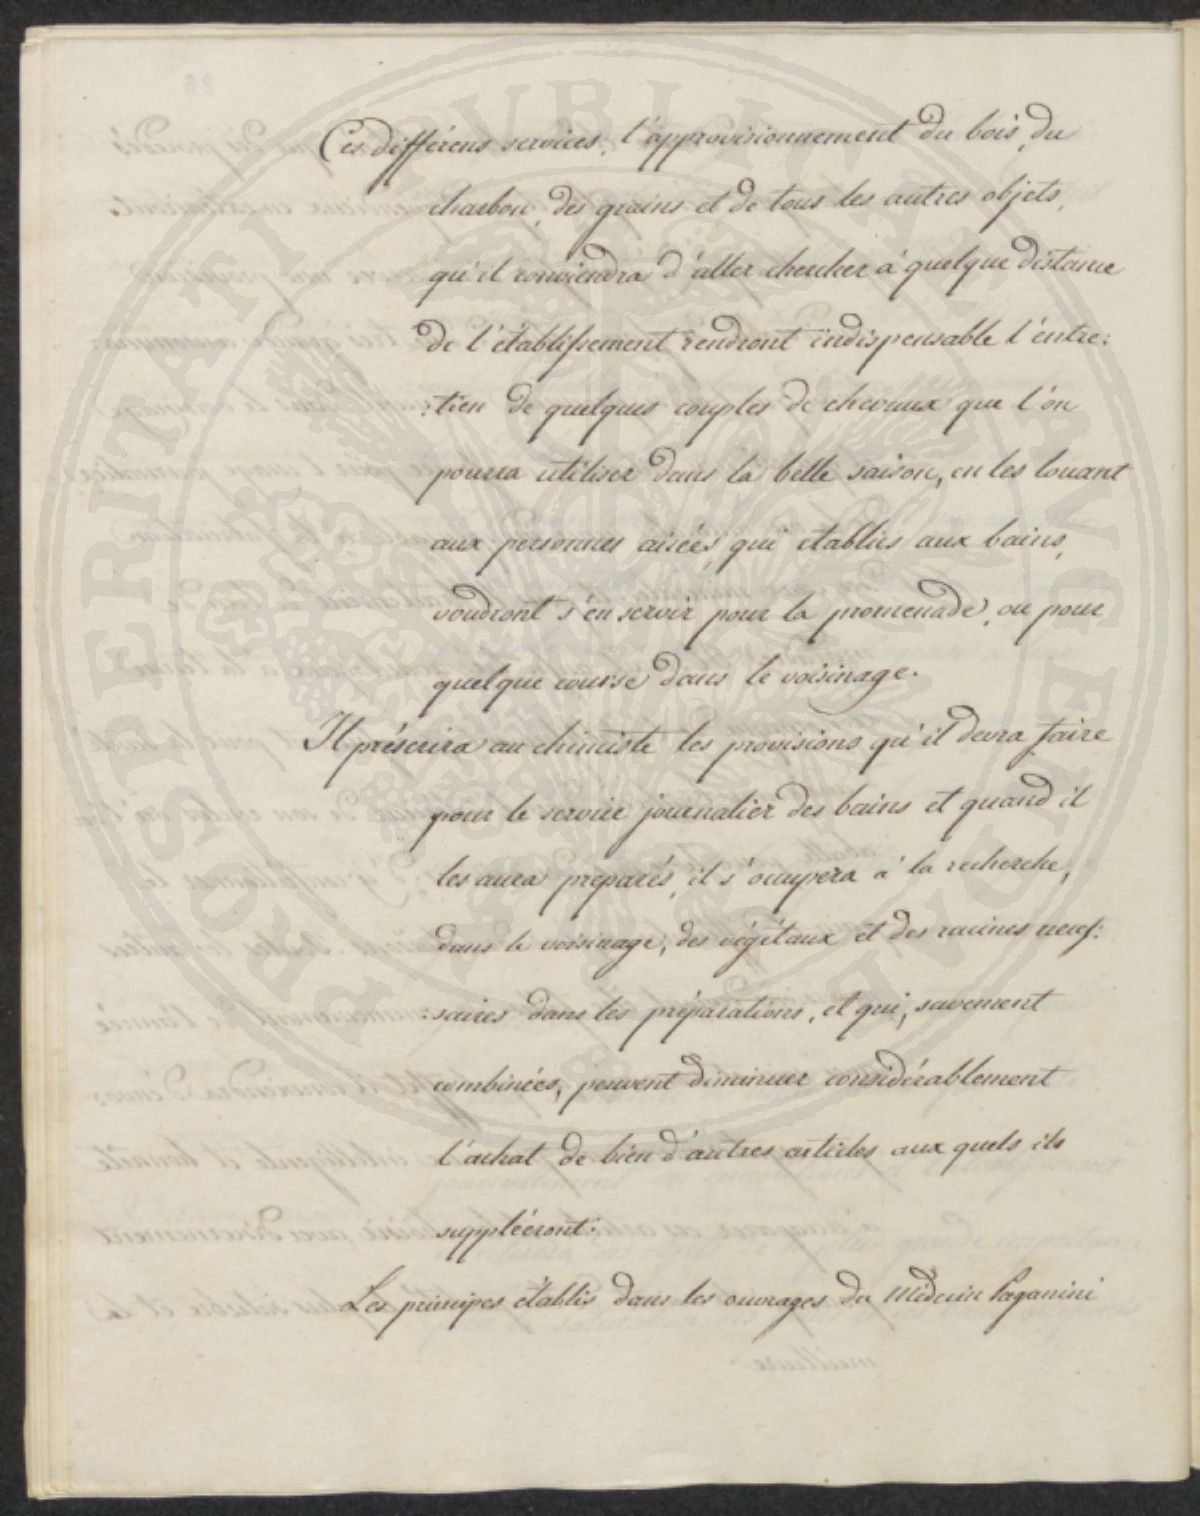 Ces différens services, l'approvisionnement du bois, du
charbon, des grains et de tous les autres objets,
qu'il conviendra d'aller chercher à quelque distance
de l'établissement rendront indispensable l'entre:
:tien de quelques couples de chevaux que l'on
pourra utiliser dans la belle saison, en les louant
aux personnes aisées, qui etablies aux bains,
voudront s'en servir pour la promenade, ou pour
quelque course dans le voisinage.
Il préscrira au chimiste les provisions qu'il devra faire
pour le service journalier des bains et quand il
les aura préparés, il s'occupera à la recherche,
dans le voisinage, des végétaux et des racines neces:
:saires dans les préparations, et qui, savement
combinées, peuvent diminuer considérablement
l'achat de bien d'autres articles aux quels ils
suppléeront.
Les principes établis dans les ouvrages du Médecin Paganini
PROSPERITATI PVBLICAE AVGENDAE